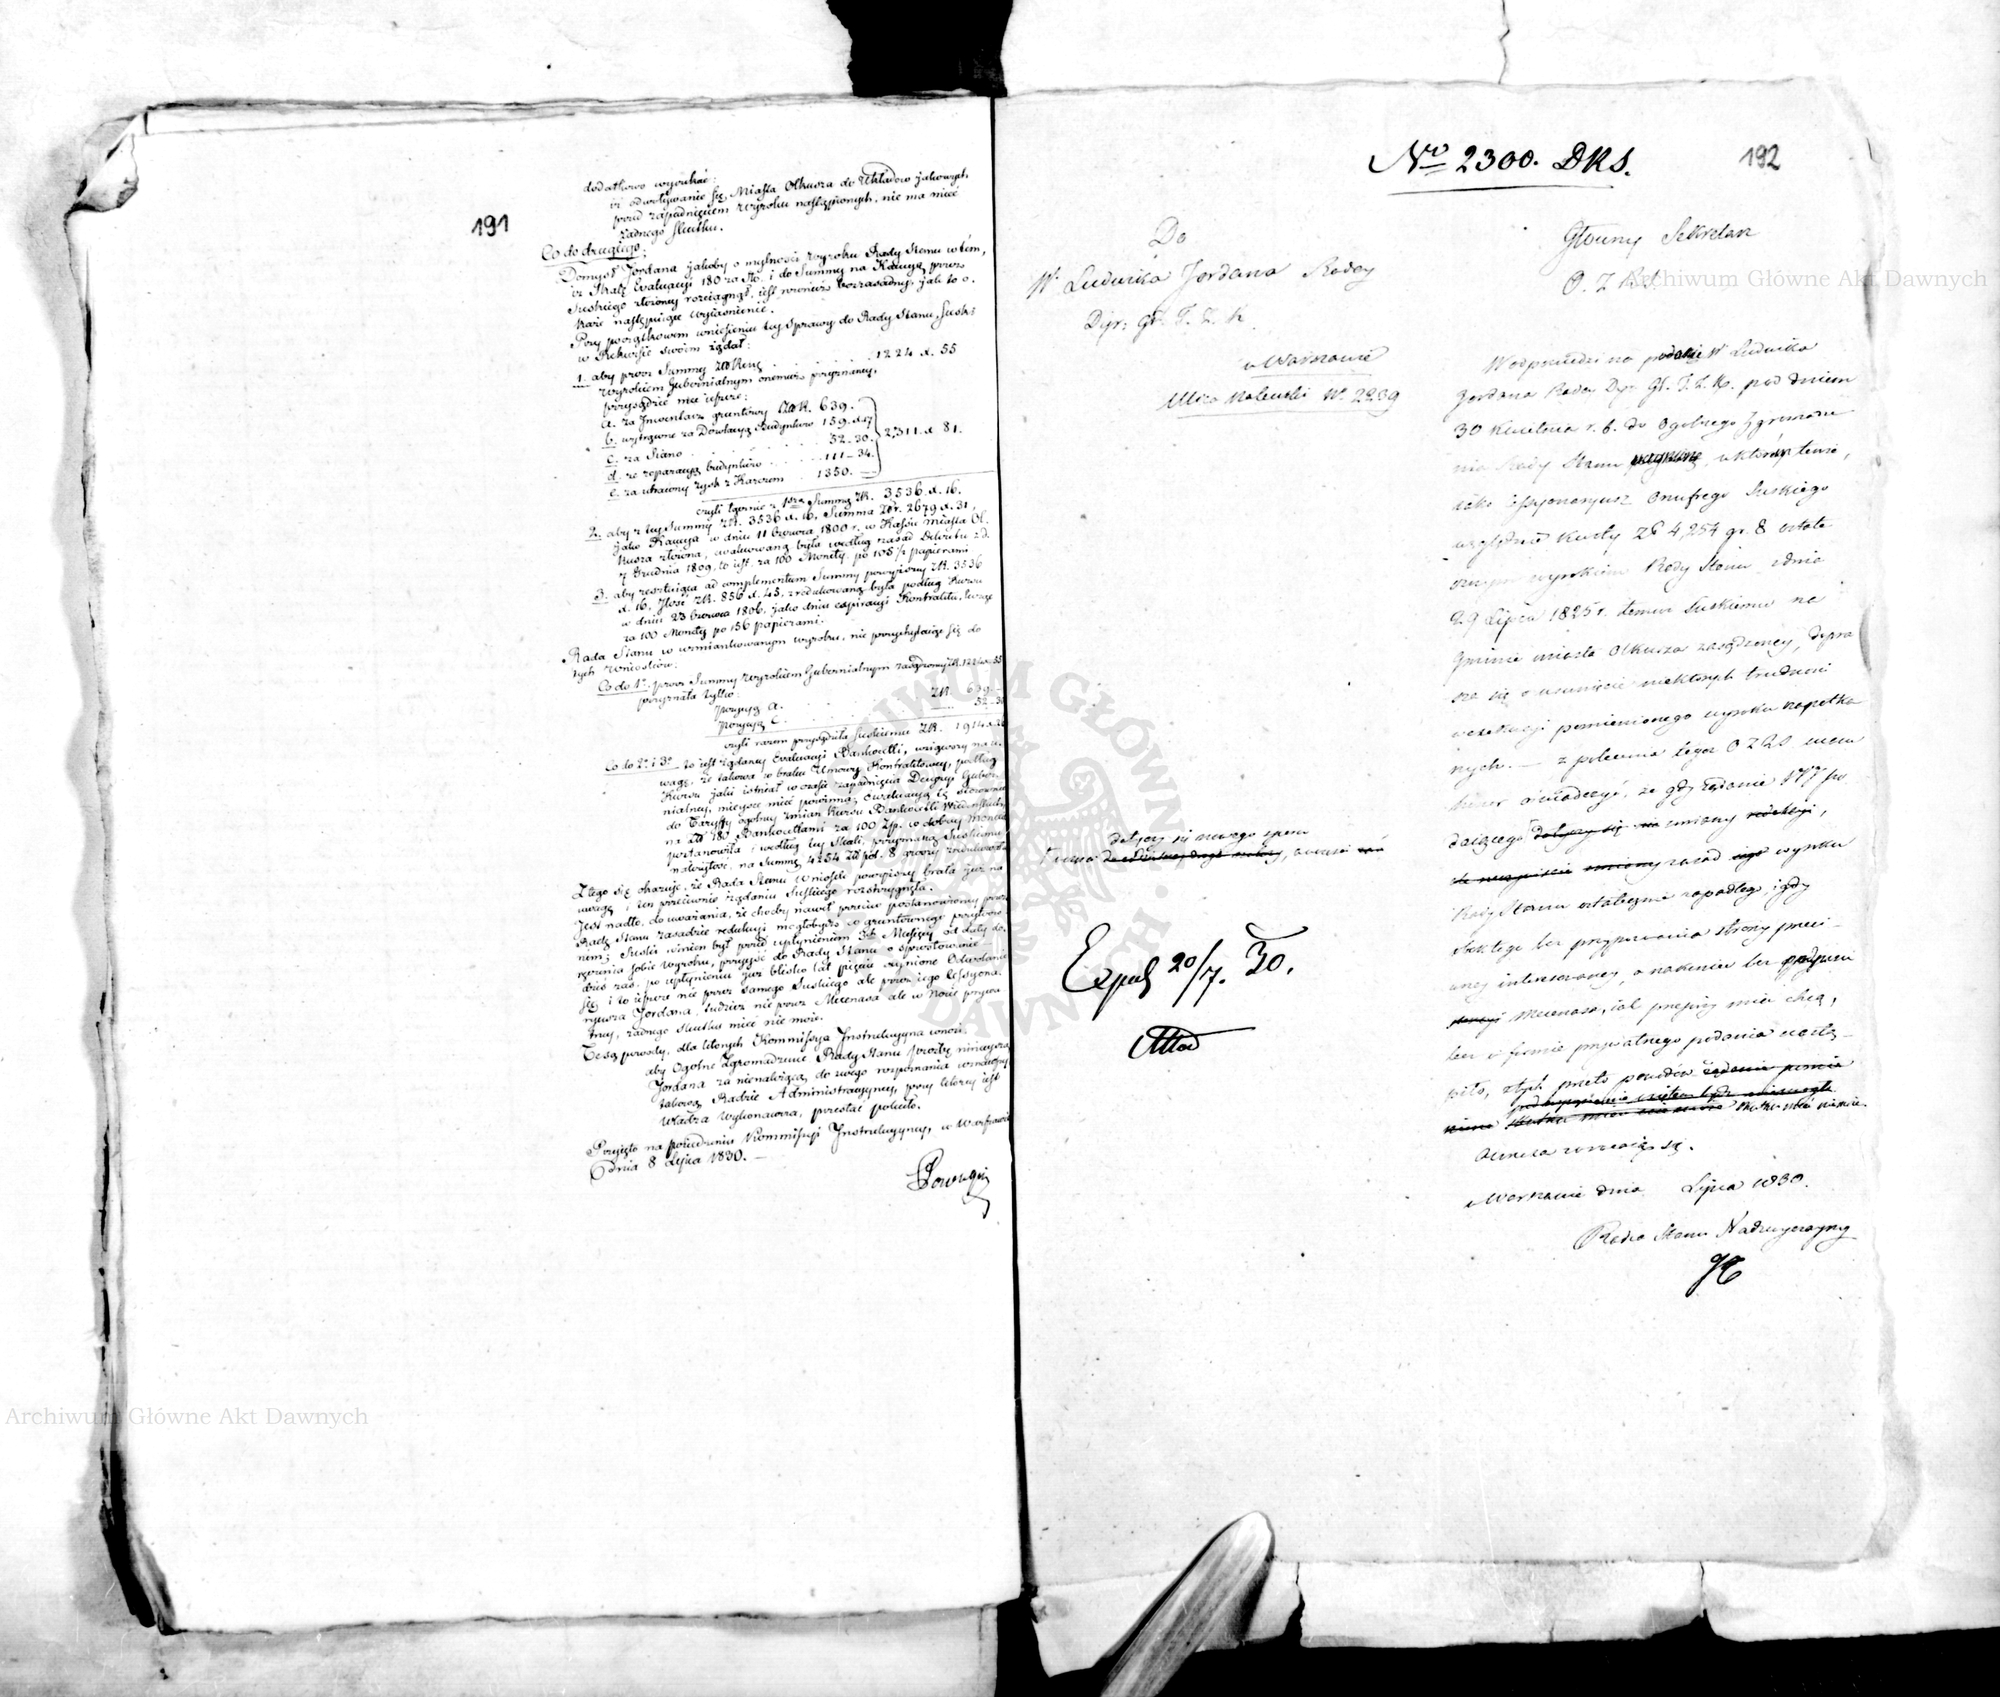 191
dodatkowo wyrukać:
iż odwoływanie się Miasta Olkusza do Układów jakowych,
przed zapadnięciem Wyroku nastąpionych, nie ma mieć
żadnego skutku.
Co do drugiego:
Domysł Jordana jakoby o mylności wyroku Rady Stanu w tém,
iż Skalę Ewaluacyi 180 za % i do Summy na Kaucyą przez
Suskiego złożoney rozciągnął, jest również bezzasadny, jak to o-
każe następujące wyjaśnienie.
Przy początkowem wniesieniu tey Sprawy do Rady Stanu, Suski
w Rekursie swoim żądał:
1. aby prócz Summy ZłRens. 1224 x. 55
wyrokiem Gubernialnym onemuż przyznaney,
przysądzić mu jeszcze:
a. za Inwentarz gruntowy ZłR. 639.
b. wytrącone za Dozór Budynków 159. x. 17
c. za Siano 52-30.
d. za reparacyą budynków 111-34.
2311. x. 81.
e. za utracony zysk z Karczem 1350. —
czyli łącznie z 1szą Summą ZR. 3536. x. 16.
2. aby z tey Summy ZR. 3536 x. 16, Summa ZR. 2679 x. 31,
jako Kaucya w dniu 11 Czerwca 1800 r. w Kassie miasta Ol-
kusza złożona, ewaluowaną była według zasad Dekretu z d.
7 Grudnia 1809, to jest, za 100 Monety, po 105 ½ papierami
3. aby resztująca ad complementum Summy powyższey ZR. 3536
x. 16, Ilość ZR. 856 x. 45, zredukowaną była podług Kursu
w dniu 23 Czerwca 1806, jako dniu expiracyi Kontraktu, licząc
za 100 Monety po 156 papierami.
Rada Stanu w wzmiankowanym wyroku, nie przychylając się do
tych Wniosków:
Co do 1o. prócz Summy wyrokiem Gubernialnym zasądzoney ZR. 1224 x. 55
przyznała tylko:
Pozycyą a. ZR. 639.
Pozycyą c. 52-30
czyli razem przysądziła Suskiemu ZR. 1914 x. 26
Co do 2o. i 3o. to jest żądaney Ewaluacyi Bankocetli, wziąwszy na u-
wagę, że takowa w braku Umowy Kontraktowey, podług
Kursu jaki istniał w czasie zapadnięcia Decyzyi Guber-
nialney, mieysce mieć powinna, ewaluacyą tę stosownie
do Taryffy ogólney zmian Kursu Bankocetli Wiedeńskich,
na Złr 180 Bankocetlami za 100 Złp. w dobrey Monecie
postanowiła i według tey Skali, przyznaną Suskiemu
należytość, na Summę 4254 Zł pol. 8 groszy zredukowała
Z tego się okazuje, że Rada Stanu Wnioski powyższe brała już na
uwagę i ten przeciwnie żądaniu Suskiego rozstrzygnęła.
Jest nadto, do uważania, że choćby nawet przeciw postanowioney przez
Radę Stanu zasadzie redukcyi mogłobydź co gruntownego przytoczo-
nem; Suski winien był przed upłynieniem 3ch Miesięcy od daty do-
ręczenia sobie wyroku, przyjść do Rady Stanu o sprostowanie
dziś zaś, po upłynieniu już blisko lat pięciu czynione Odwołanie
się i to jeszcze nie przez samego Suskiego ale przez jego Cessyona-
ryusza Jordana, tudzież nie przez Mecenasa ale w Nocie prywa
tney, żadnego skutku mieć nie może.
Te są powody, dla których Kommissya Instrukcyyna wnosi:
aby Ogólne Zgromadzenie Rady Stanu prośbę ninieyszą
Jordana za nienależącą do swego rozpoznania uznawszy,
takową Radzie Administracyyney, przy którey jest
Władza Wykonawcza, przesłać poleciło.
Przyjęto na posiedzeniu Kommissyi Instrukcyyney, w Warszawie
dnia 8 Lipca 1830. —
No 2300. DRS.
192
Do
W. Ludwika Jordana Radcy
Dyr: Gł. T. Z. K.
w Warszawie
Ulica Nalewki No. 2239
Główny Sekretarz
O. Z. R. S.
W odpowiedzi na podanie W. Ludwika
Jordana Radcy Dyr. Gł. T. Z. K. pod dniem
30 Kwietnia r. b. do Ogólnego Zgromadze
nia Rady Stanu, w którym tenże,
jako Cessyonaryusz Onufrego Suskiego
względnie kwoty Zł 4,254 gr. 8 ostate
cznym wyrokiem Rady Stanu z dnia
29 Lipca 1825 r. temuż Suskiemu na
Gminie miasta Olkusza zasądzoney, dopra
sza się o usunięcie niektórych trudności
w exekucyi pomienionego wyroku napotka
nych. — z polecenia tegoż O Z R S. mam
honor oświadczyć, że gdy żądanie
dotyczy się nowego
zmiany
zasad wyroku
Rady Stanu ostatecznie zapadłego, i gdy
bez przypozwania strony przeci-
wney interesowaney, a nakoniec bez
Mecenasa, jak przepisy mieć chcą,
lecz w formie prywatnego podania nastą-
piło, z tych przeto powodów
skutku mieć nie może.
w Warszawie dnia Lipca 1830.
Radca Stanu Nadzwyczayny
Exped 20/7. 30.